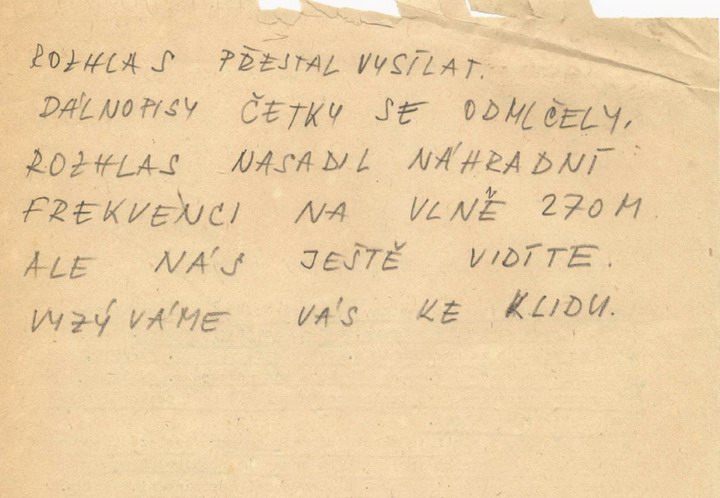 ROZHLAS PŘESTAL VYSÍLAT.
DÁLNOPISY ČETKY SE ODMLČELY.
ROZHLAS NASADIL NÁHRADNÍ
FREKVENCI NA VLNĚ 270 M
ALE NÁS JEŠTĚ VIDÍTE.
VYZÝVÁME VÁS KE KLIDU.